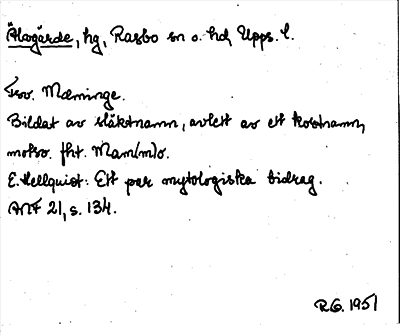 Älvgärde, hg, Rasbo sn o. hd, Upps. l.
Fsv. Mæminge.
Bildat av släktnamn, avlett av ett kortnamn,
motsv. fht. Mam(m)o.
E. Hellquist: Ett par mytologiska bidrag.
ANF 21, s. 134.
R.G. 1951